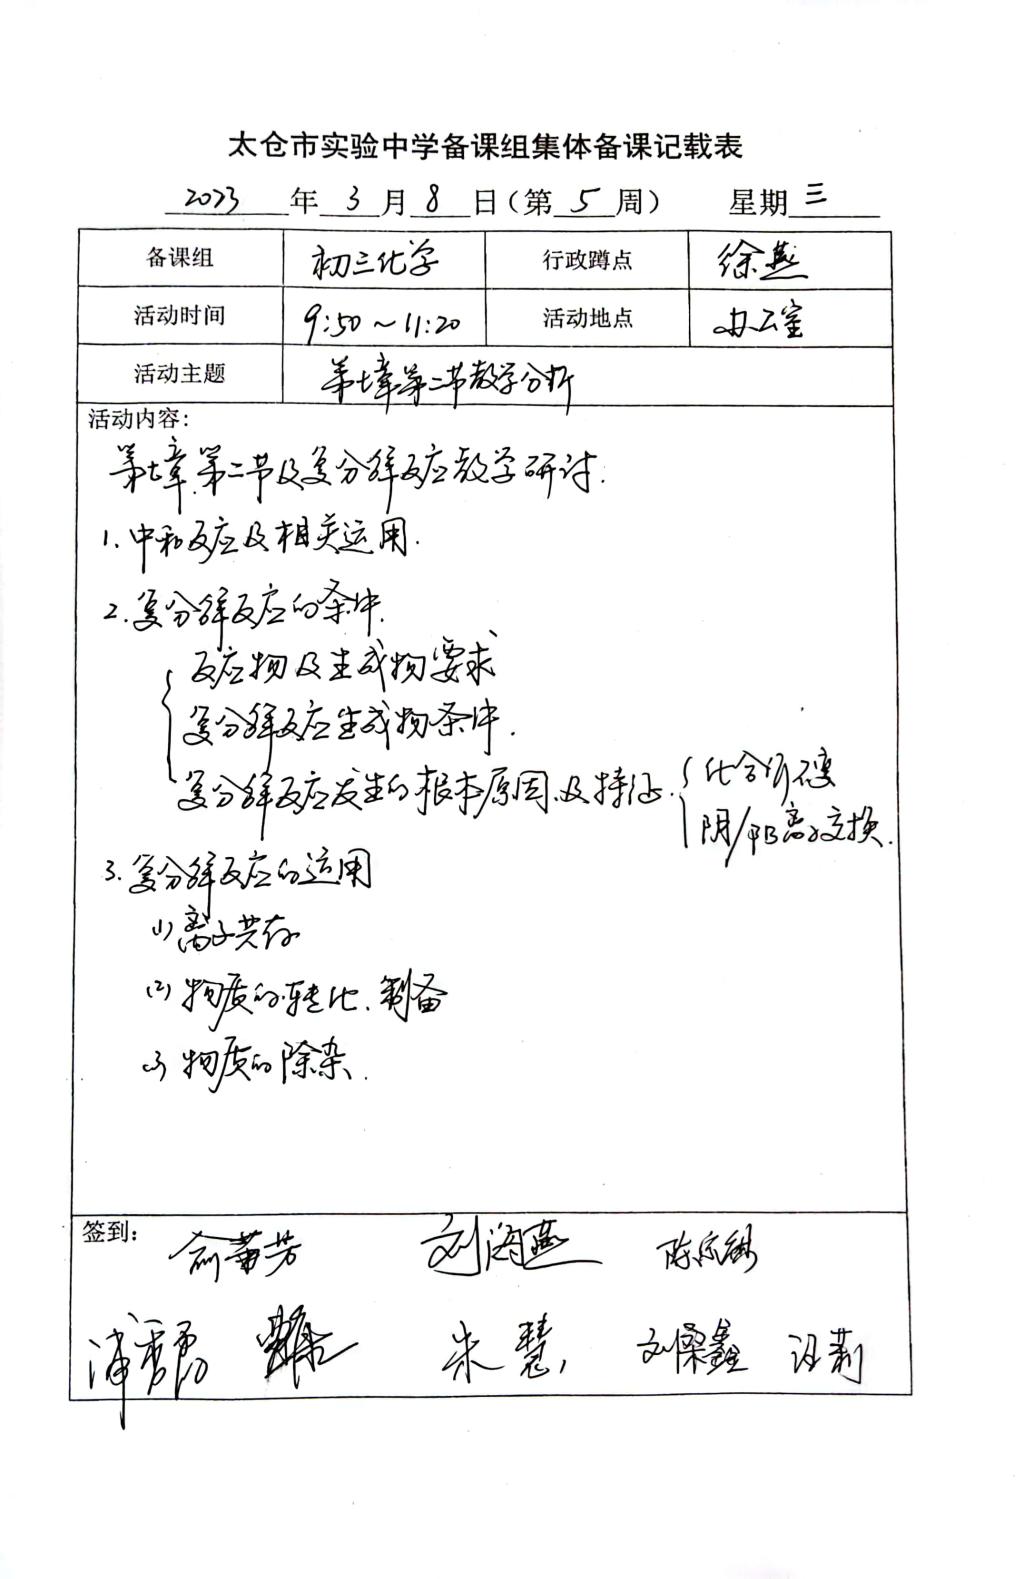 太仓市实验中学备课组集体备课记载表
2023 年 3 月 8 日(第 5 周) 星期 三
备课组 初三化学 行政蹲点 徐燕
活动时间 9:50~11:20 活动地点 办公室
活动主题 第七章第二节教学分析
活动内容:
第七章第二节及复分解反应教学研讨.
1.中和反应及相关运用.
2.复分解反应的条件.
反应物及生成物要求
复分解反应生成物条件.
复分解反应发生的根本原因及特征.
化合价不变
阴/阳离子交换.
3.复分解反应的运用
(1)离子共存
(2)物质的转化、制备
(3)物质的除杂.
签到:
俞菊芳 刘海燕
朱慧 刘燦鑫 汪莉